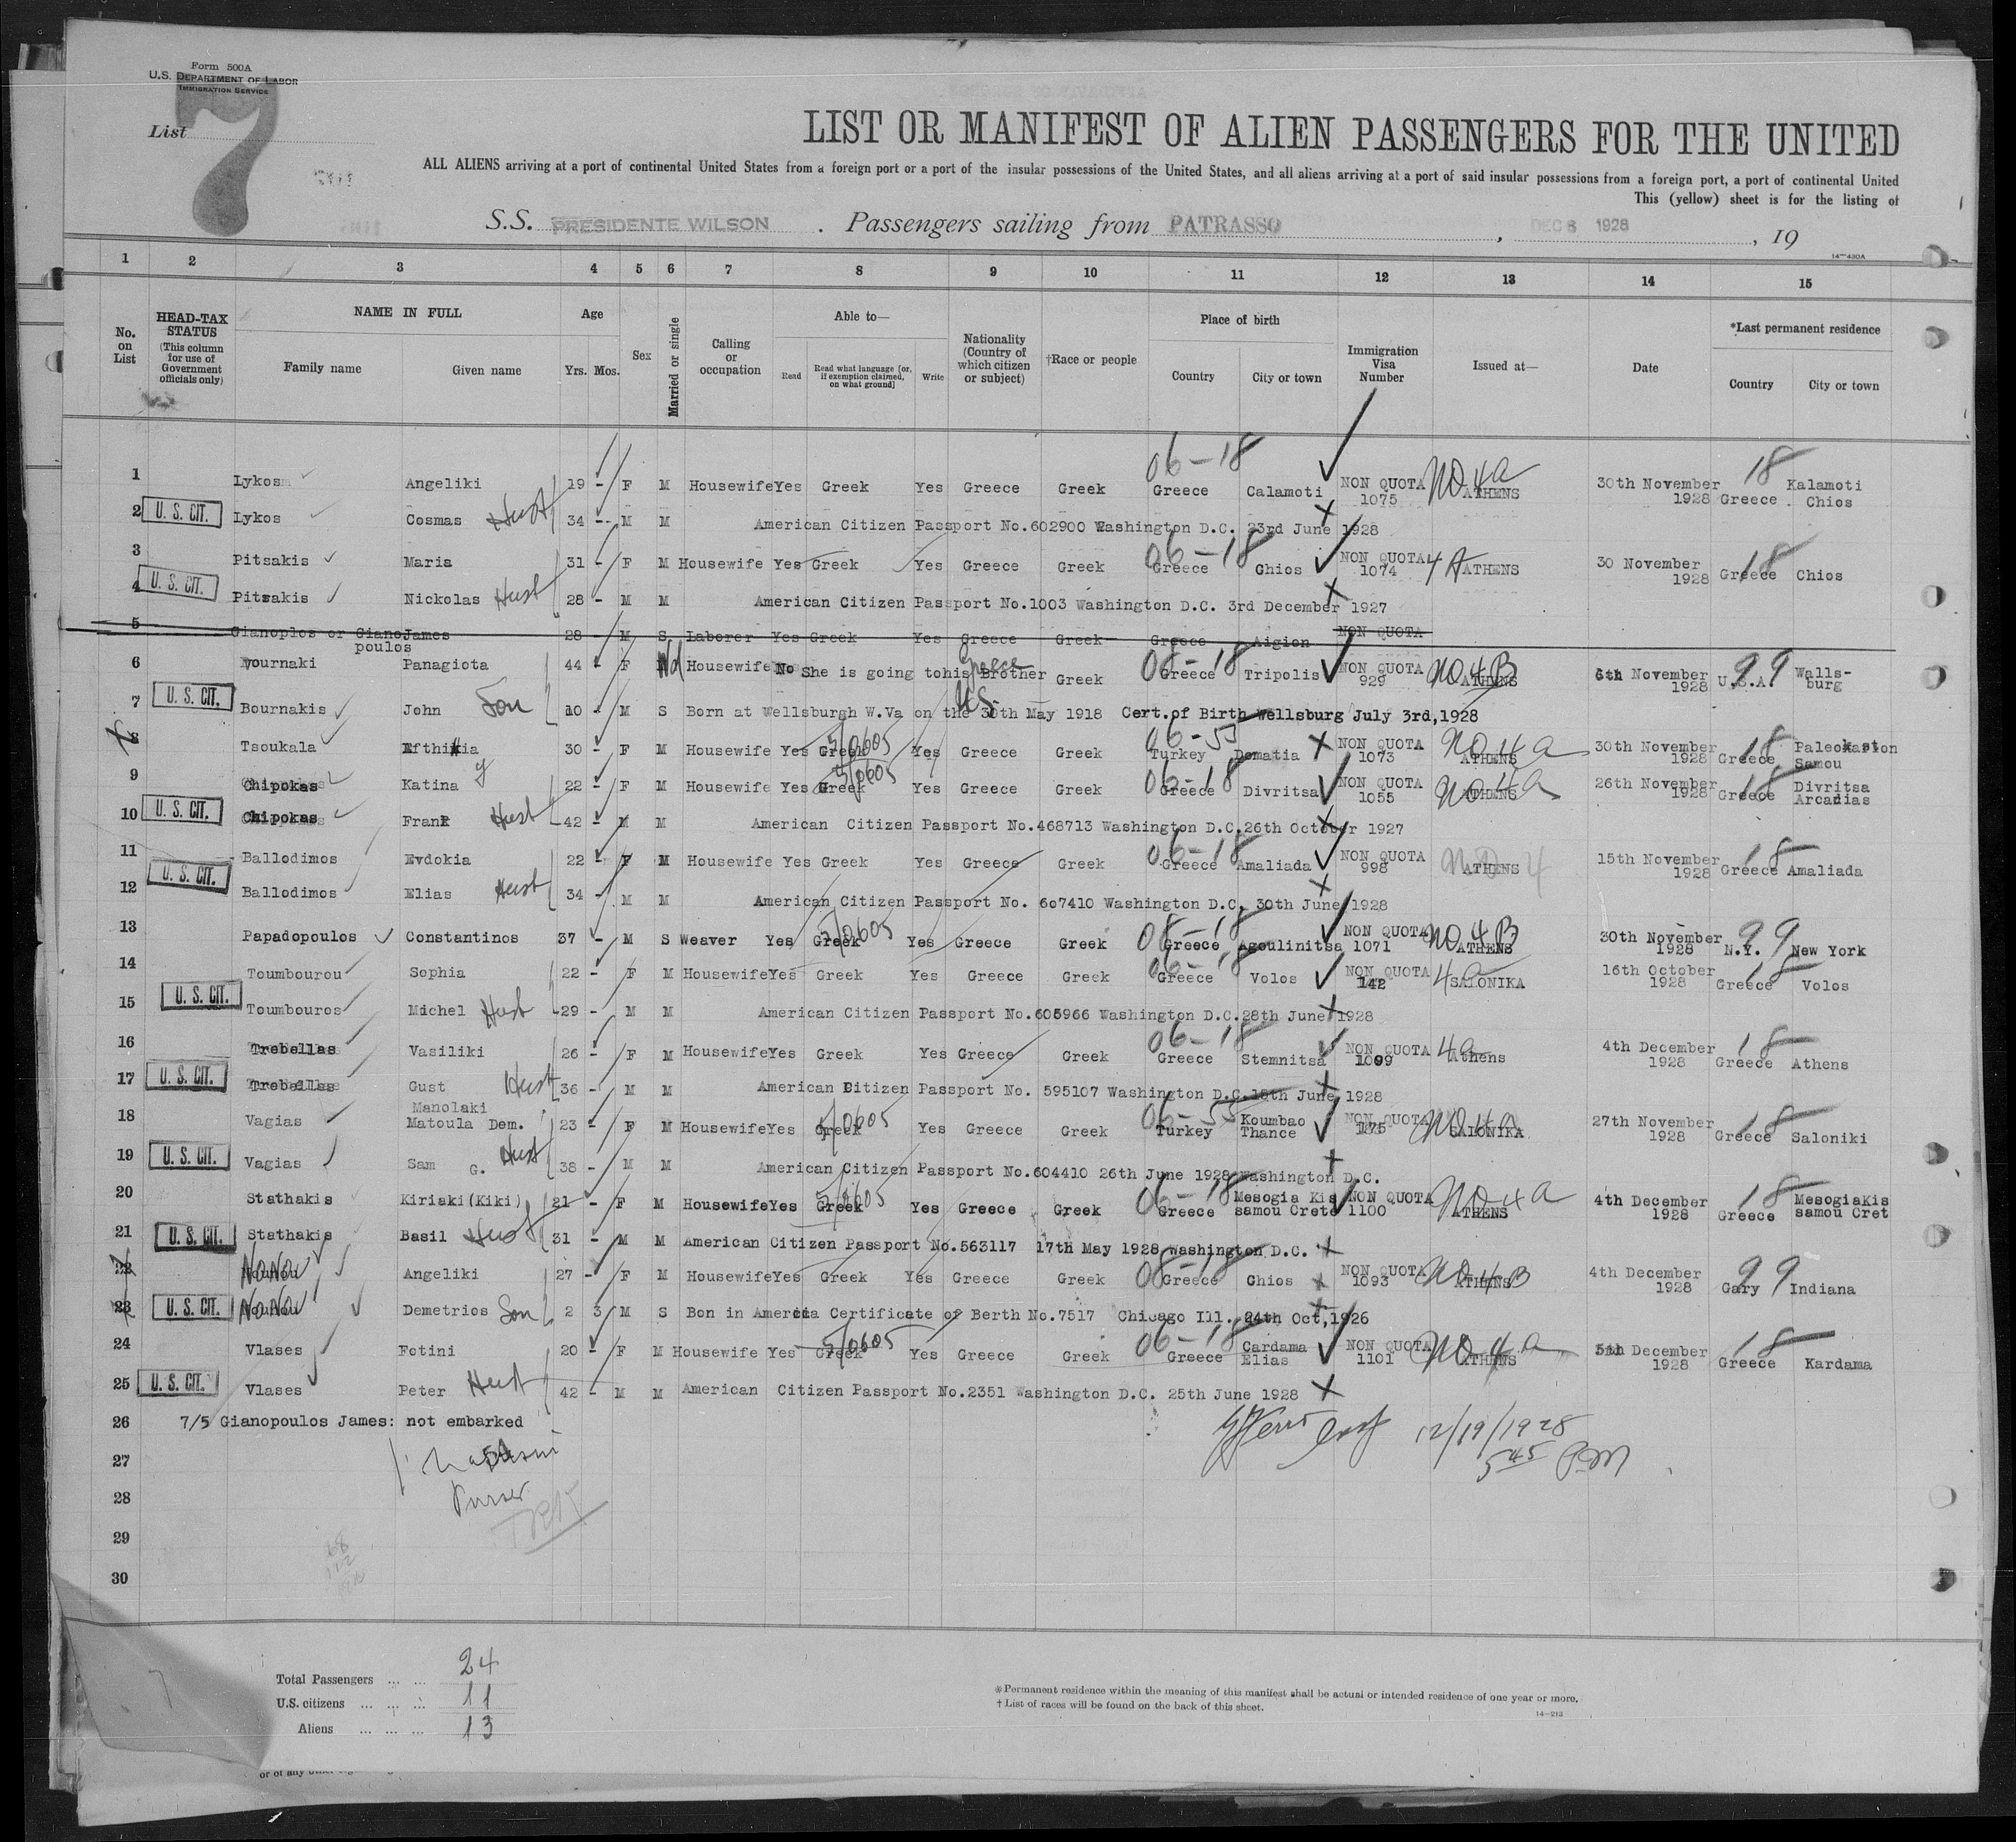 Form 500A
U.S. DEPARTMENT OF LABOR
IMMIGRATION SERVICE
List 7
LIST OR MANIFEST OF ALIEN PASSENGERS FOR THE UNITED
ALL ALIENS arriving at a port of continental United States from a foreign port or a port of the insular possessions of the United States, and all aliens arriving at a port of said insular possessions from a foreign port, a port of continental United
This (yellow) sheet is for the listing of
S.S. PRESIDENTE WILSON . Passengers sailing from PATRASSO , DEC 6 1928 , 19
14-430A
1 2 3 4 5 6 7 8 9 10 11 12 13 14 15
No. on List
HEAD-TAX STATUS (This column for use of Government officials only)
NAME IN FULL
Family name Given name
Age
Yrs. Mos.
Sex
Married or single
Calling or occupation
Able to—
Read Read what language [or, if exemption claimed, on what ground] Write
Nationality (Country of which citizen or subject)
†Race or people
Place of birth
Country City or town
Immigration Visa Number
Issued at—
Date
*Last permanent residence
Country City or town
1 Lykos Angeliki 19 - F M Housewife Yes Greek Yes Greece Greek 06-18 Greece Calamoti NON QUOTA 1075 NO 4a ATHENS 30th November 1928 18 Greece Kalamoti Chios
2 U. S. CIT. Lykos Cosmas Hust 34 -- M M American Citizen Passport No.602900 Washington D.C. 23rd June 1928
3 Pitsakis Maria 31 - F M Housewife Yes Greek Yes Greece Greek 06-18 Greece Chios NON QUOTA 1074 4 A ATHENS 30 November 1928 18 Greece Chios
4 U. S. CIT. Pitsakis Nickolas Hust 28 - M M American Citizen Passport No.1003 Washington D.C. 3rd December 1927
5 Gianoplos or Gianopoulos James 28 - M S Laborer Yes Greek Yes Greece Greek Greece Aigion NON QUOTA
6 Vournaki Panagiota 44 - F Wd Housewife No She is going to his Brother Greece Greek 08-18 Greece Tripolis NON QUOTA 929 NO 4B ATHENS 6th November 1928 99 U.S.A. Wallsburg
7 U. S. CIT. Bournakis John Son 10 - M S Born at Wellsburgh W.Va on the 30th May 1918 US Cert.of Birth Wellsburg July 3rd,1928
8 Tsoukala Efthimia 30 - F M Housewife Yes Greek 5/0605 Yes Greece Greek 06-55 Turkey Domatia NON QUOTA 1073 NO 4a ATHENS 30th November 1928 18 Greece Paleokaston Samou
9 Chipokas Katina 22 - F M Housewife Yes Greek 5/0605 Yes Greece Greek 06-18 Greece Divritsa NON QUOTA 1055 NO 4a ATHENS 26th November 1928 18 Greece Divritsa Arcadias
10 U. S. CIT. Chipokas Frank Hust 42 - M M American Citizen Passport No.468713 Washington D.C.26th October 1927
11 Ballodimos Evdokia 22 - F M Housewife Yes Greek Yes Greece Greek 06-18 Greece Amaliada NON QUOTA 998 NO 4 ATHENS 15th November 1928 18 Greece Amaliada
12 U. S. CIT. Ballodimos Elias Hust 34 - M M American Citizen Passport No. 607410 Washington D.C. 30th June 1928
13 Papadopoulos Constantinos 37 - M S Weaver Yes Greek 5/0605 Yes Greece Greek 08-18 Greece Agoulinitsa NON QUOTA 1071 NO 4B ATHENS 30th November 1928 99 N.Y. New York
14 Toumbourou Sophia 22 - F M Housewife Yes Greek Yes Greece Greek 06-18 Greece Volos NON QUOTA 142 4a SALONIKA 16th October 1928 18 Greece Volos
15 U. S. CIT. Toumbouros Michel Hust 29 - M M American Citizen Passport No.605966 Washington D.C.28th June 1928
16 Trebellas Vasiliki 26 - F M Housewife Yes Greek Yes Greece Greek 06-18 Greece Stemnitsa NON QUOTA 1099 4a Athens 4th December 1928 18 Greece Athens
17 U. S. CIT. Trebellas Gust Hust 36 - M M American Citizen Passport No. 595107 Washington D.C.15th June 1928
18 Vagias Manolaki Matoula Dem. 23 - F M Housewife Yes Greek 5/0605 Yes Greece Greek 06-55 Turkey Koumbao Thance NON QUOTA 175 NO 4a SALONIKA 27th November 1928 18 Greece Saloniki
19 U. S. CIT. Vagias Sam G. Hust 38 - M M American Citizen Passport No.604410 26th June 1928 Washington D.C.
20 Stathakis Kiriaki(Kiki) 21 - F M Housewife Yes Greek 5/0605 Yes Greece Greek 06-18 Greece Mesogia Kissamou Crete NON QUOTA 1100 NO 4a ATHENS 4th December 1928 18 Greece Mesogiakissamou Cret
21 U. S. CIT. Stathakis Basil Hust 31 - M M American Citizen Passport No.563117 17th May 1928 Washington D.C.
22 NONOU Angeliki 27 - F M Housewife Yes Greek Yes Greece Greek 08-18 Greece Chios NON QUOTA 1093 NO 4B ATHENS 4th December 1928 99 Gary Indiana
23 U. S. CIT. NONOU Demetrios Son 2 3 M S Bon in America Certificate of Berth No.7517 Chicago Ill. 24th Oct,1926
24 Vlases Fotini 20 - F M Housewife Yes Greek 5/0605 Yes Greece Greek 06-18 Greece Cardama Elias NON QUOTA 1101 NO 4a ATHENS 5th December 1928 18 Greece Kardama
25 U. S. CIT. Vlases Peter Hust 42 - M M American Citizen Passport No.2351 Washington D.C. 25th June 1928
26 7/5 Gianopoulos James: not embarked
12/19/1928
5 45 PM
27
Purser
28
29
30
Total Passengers ... ... 24
U.S. citizens ... ... ... 11
Aliens ... ... ... 13
*Permanent residence within the meaning of this manifest shall be actual or intended residence of one year or more.
†List of races will be found on the back of this sheet.
14-213